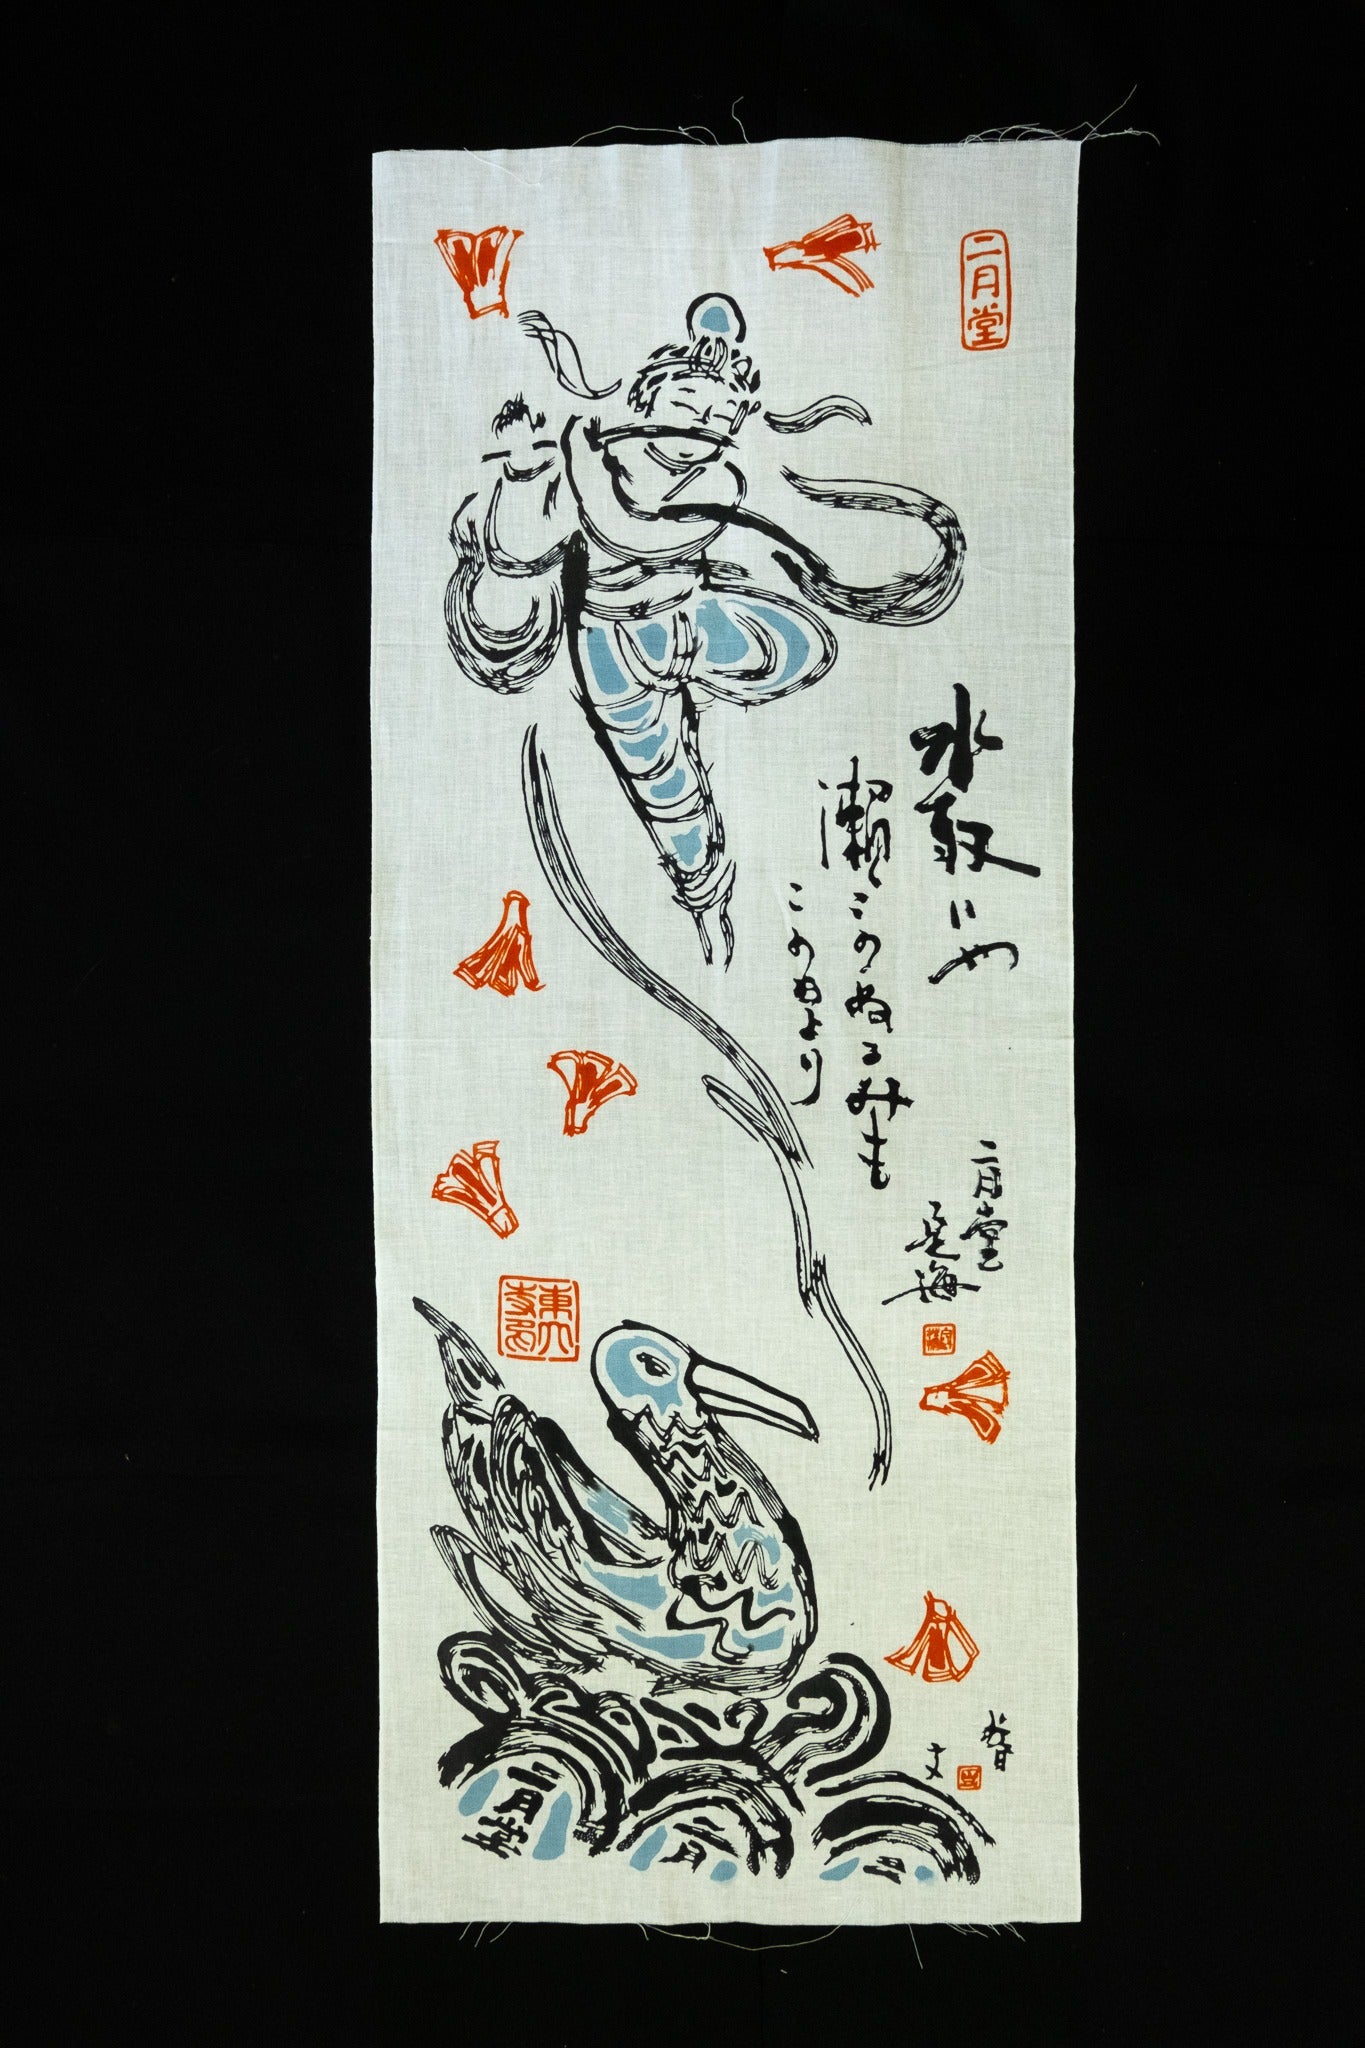 二月堂
水取りや
瀬ゝのぬるみも
この日より
二月堂
海
東大
寺
二月堂
二月